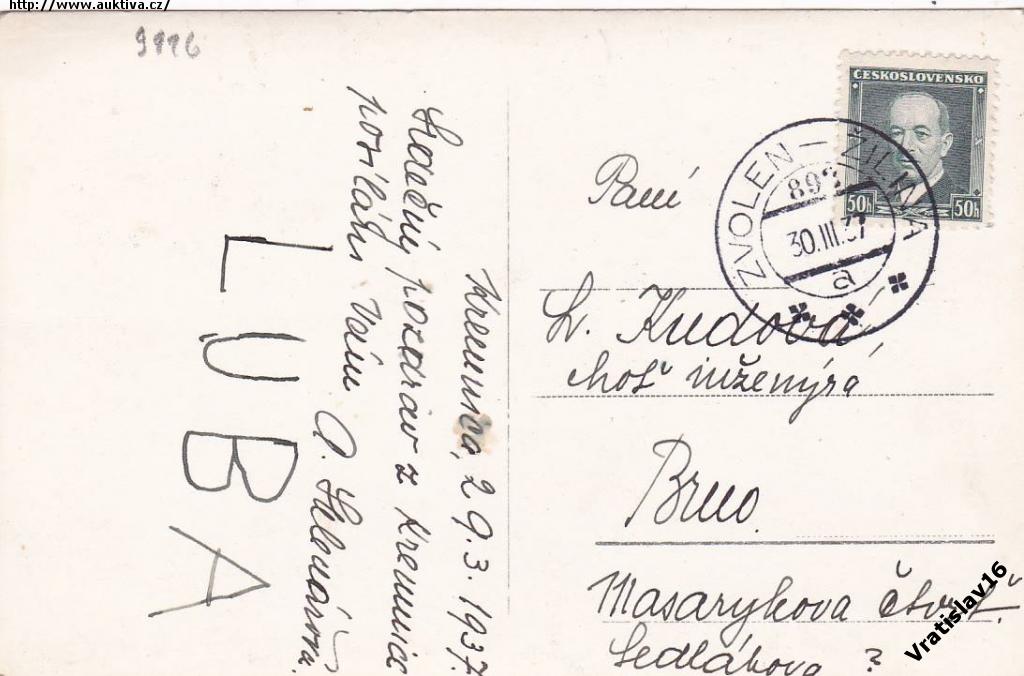 http://www.auktiva.cz/
9996
Kremnica, 29.3.1937.
Srdečný pozdrav z Kremnice
posílám Vám A.
LUBA
ČESKOSLOVENSKO
50h 50h
ZVOLEN – ŽILINA
893
30.III.37
a
Paní
L. Kudová,
choť inženýra
Brno.
Masarykova čtvrť.
Sedlákova ?
Vratislav16